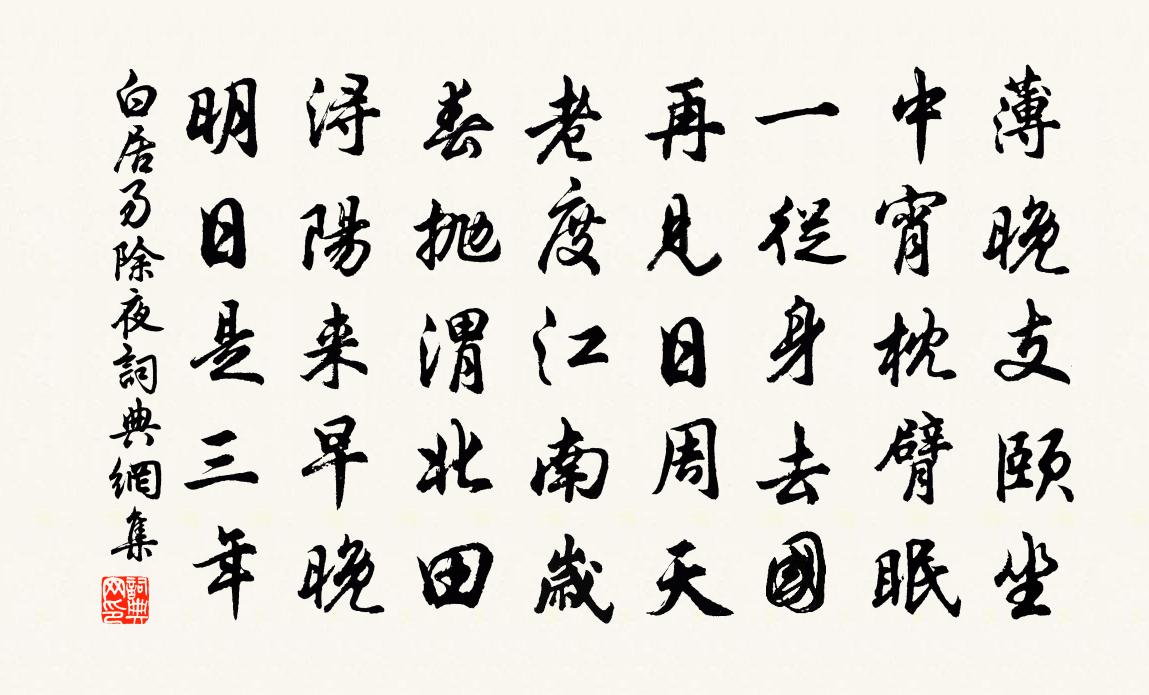 薄晚支頤坐
中宵枕臂眠
一從身去國
再見日周天
老度江南歲
春抛渭北田
潯陽来早晚
明日是三年
白居易除夜詞典網集
詞典网印